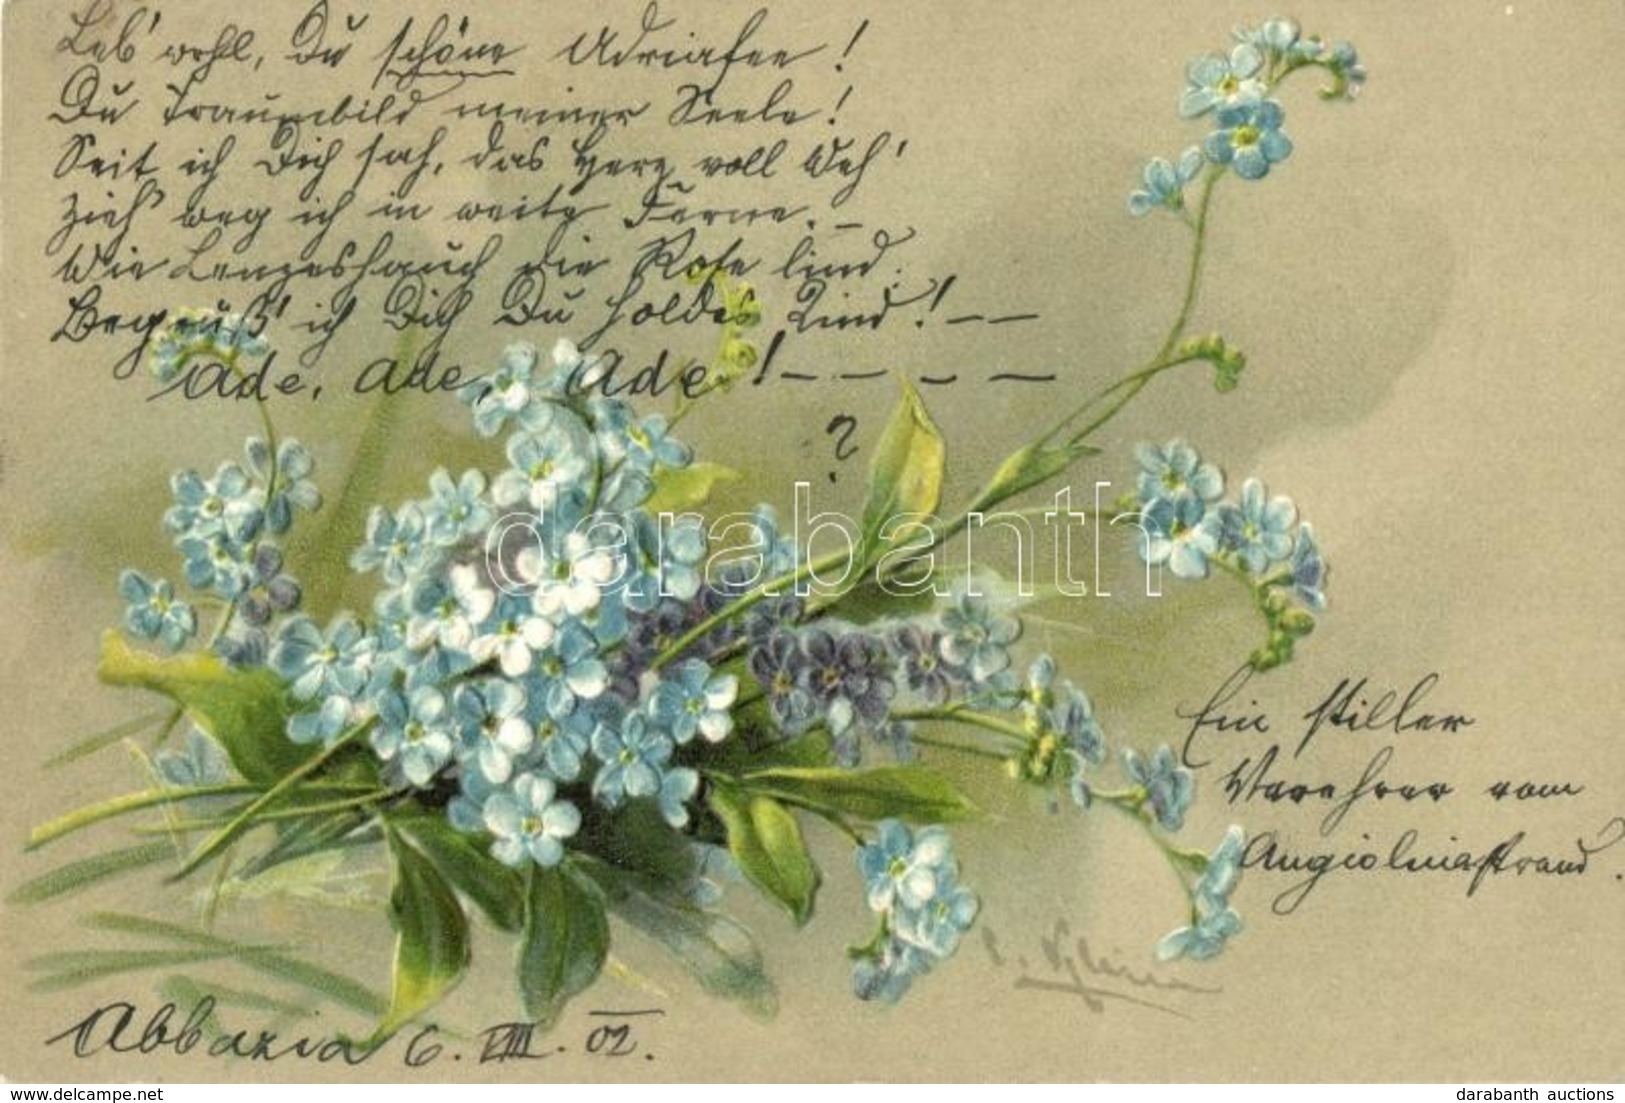 Leb' wohl, Du schöne Adriafee!
Du Traumbild meiner Seele!
Seit ich Dich sah, das Herz voll Weh'
Zieh' weg ich in weite Ferne. —
Wie Lenzeshauch die Rose lind.
Begrüß' ich Dich Du holdes Kind! — —
Ade, Ade, Ade! — — — —
?
darabanth
Ein stiller
Verehrer vom
Angiolinastrand.
C. Klein
Abbazia 6. VIII. 02.
delcampe.net
darabanth auctions